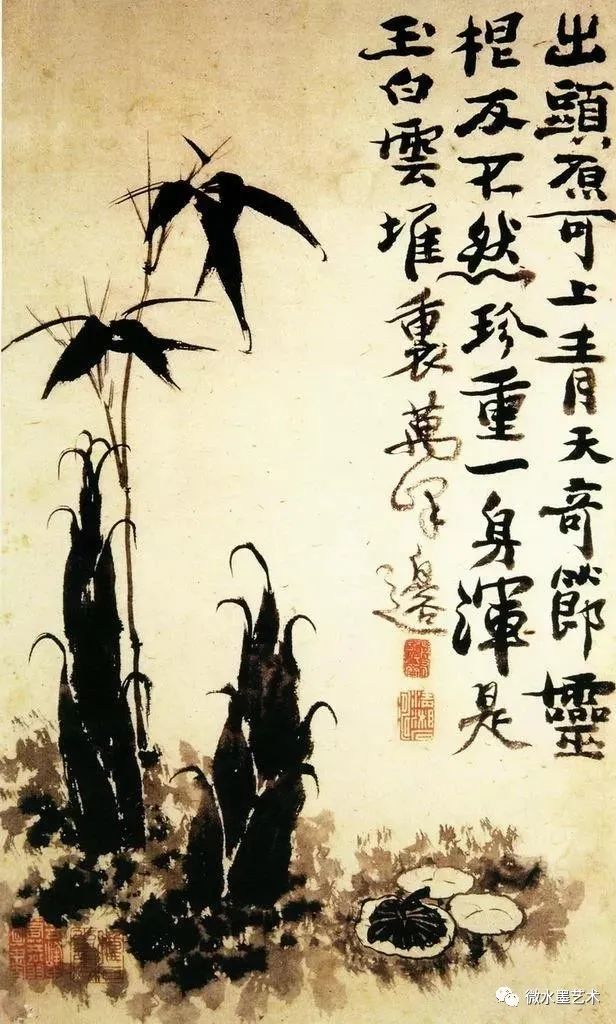 出頭原可上青天奇節靈
根反不然珍重一身渾是
玉白雲堆裏萬峰邊
微水墨艺术